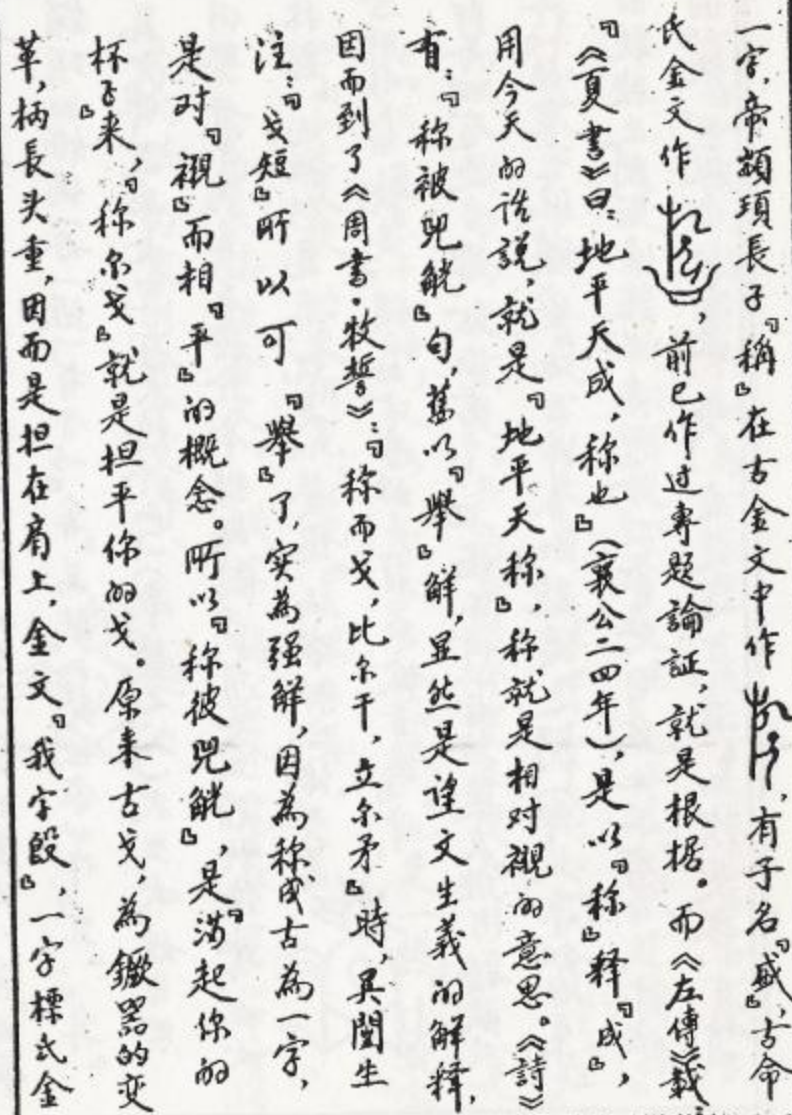 一字，帝顓頊長子『稱』在古金文中作，有子名『盛』，古命
氏金文作，前已作过專題論証，就是根据。而《左傳》載
『《夏書》曰：地平天成，称也』（襄公二四年），是以『称』释『成』，
用今天的话說，就是『地平天称』，称就是相对襯的意思。《詩》
有：『称被兕觥』句，舊以『舉』解，显然是望文生義的解釋，
因而到了《周書·牧誓》：『称而戈，比尔干，立尔矛』時，異聞生
注：『戈短』所以可『舉』了，实為强解，因為称成古為一字，
是对『襯』而相『平』的概念。所以『称彼兕觥』，是『满起你的
杯子来』，『称尔戈』就是担平你的戈。原来古戈，為鐝器的变
革，柄長头重，因而是担在肩上，金文『我字殷』，一字標氏金